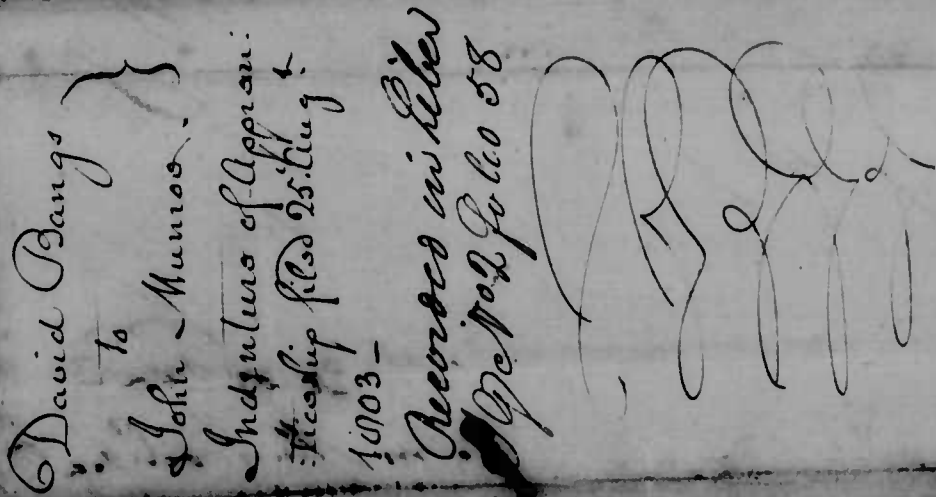 David Bangs }
To
John Munroe.
Indenture of Appren:
:ticeship filed 25th Aug t
1803 _
Recorded in Liber
No 2 Folio 58